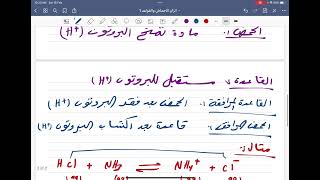 الحمض: مادة تمنح البروتون (H⁺)
القاعدة: مستقبل للبروتون (H⁺)
القاعدة المرافقة: الحمض بعد فقد البروتون (H⁺)
الحمض المرافق: قاعدة بعد اكتساب البروتون (H⁺)
مثال:
HCl + NH₃ ⇌ NH₄⁺ + Cl⁻